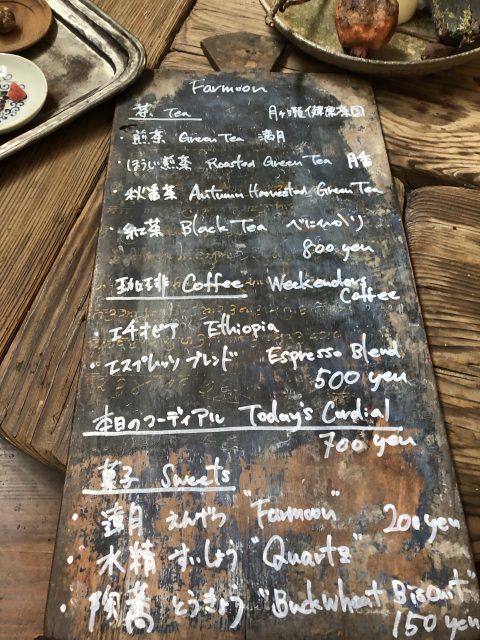 Farmoon
茶 Tea 月ヶ瀬健康茶園
・煎茶 Green Tea 満月
・ほうじ煎茶 Roasted Green Tea 月香
・秋番茶 Autumn Harvested Green Tea
・紅茶 Black Tea べにひかり
800 yen
珈琲 Coffee Weekenders
Coffee
・エチオピア Ethiopia
・エスプレッソブレンド Espresso Blend
500 yen
本日のコーディアル Today's Cordial
700 yen
菓子 Sweets
・月 えんげつ "Farmoon" 200 yen
・水精 すいしょう "Quartz"
・とうきょう "Buckwheat Biscuit"
150 yen